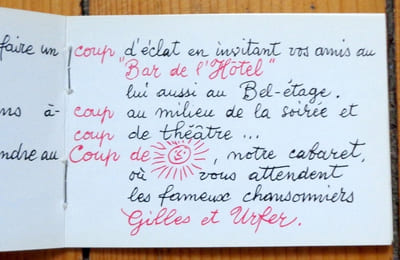 faire un coup d'éclat en invitant vos amis au
"Bar de l'Hôtel"
lui aussi au Bel-étage.
ns à-coup au milieu de la soirée et
coup de théâtre ...
ndre au Coup de , notre cabaret,
où vous attendent
les fameux chansonniers
Gilles et Urfer.